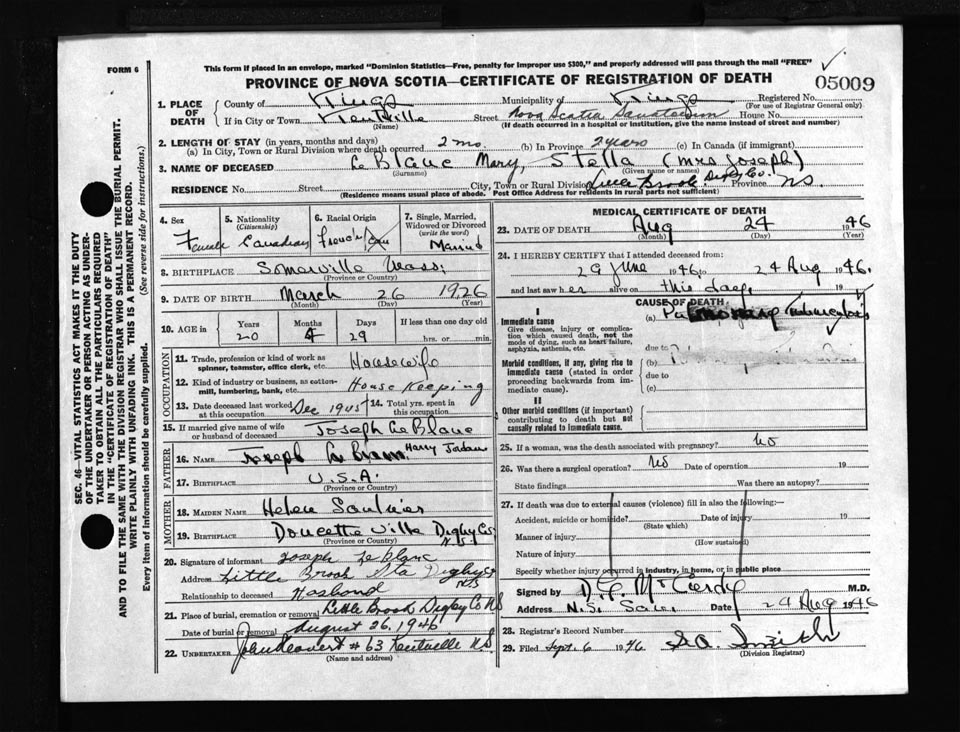 FORM 6
This form if placed in an envelope, marked "Dominion Statistics—Free, penalty for improper use $300," and properly addressed will pass through the mail "FREE"
PROVINCE OF NOVA SCOTIA—CERTIFICATE OF REGISTRATION OF DEATH
05009
1. PLACE OF DEATH
County of Kings Municipality of Kings Registered No.
(For use of Registrar General only)
If in City or Town Kentville Street Nova Scotia Sanatorium House No.
(Name) (If death occurred in a hospital or institution, give the name instead of street and number)
2. LENGTH OF STAY (in years, months and days)
(a) In City, Town or Rural Division where death occurred 2 mo. (b) In Province 2 years (c) In Canada (if immigrant)
3. NAME OF DECEASED Le Blanc Mary, Stella (Mrs Joseph)
(Surname) (Given name or names)
RESIDENCE No. Street City, Town or Rural Division Little Brook Digby Co. Province N.S.
(Residence means usual place of abode. Post Office Address for residents in rural parts not sufficient)
4. Sex Female
5. Nationality (Citizenship) Canadian
6. Racial Origin French
7. Single, Married, Widowed or Divorced (write the word) Married
8. BIRTHPLACE Somerville Mass.
(Province or Country)
9. DATE OF BIRTH March 26 1926
(Month) (Day) (Year)
10. AGE in Years Months Days If less than one day old
20 4 29 hrs. or min.
OCCUPATION
11. Trade, profession or kind of work as spinner, teamster, office clerk, etc. Housewife
12. Kind of industry or business, as cotton-mill, lumbering, bank, etc. House Keeping
13. Date deceased last worked at this occupation Dec 1945
14. Total yrs. spent in this occupation
15. If married give name of wife or husband of deceased Joseph LeBlanc
FATHER
16. NAME Joseph Le Blanc Harry Jordan
17. BIRTHPLACE U.S.A.
(Province or Country)
MOTHER
18. MAIDEN NAME Helen Saulnier
19. BIRTHPLACE Doucetteville Digby Co. N.S.
(Province or Country)
20. Signature of informant Joseph Le Blanc
Address Little Brook Sta Digby Co NS
Relationship to deceased Hasbond
21. Place of burial, cremation or removal Little Brook Digby Co NS
Date of burial or removal August 26, 1946
22. UNDERTAKER # 63 Kentville N.S.
(Name and address)
MEDICAL CERTIFICATE OF DEATH
23. DATE OF DEATH Aug 24 1946
(Month) (Day) (Year)
24. I HEREBY CERTIFY that I attended deceased from:
29 June 1946 to 24 Aug 1946.
and last saw her alive on this day, 194
CAUSE OF DEATH
I
Immediate cause
Give disease, injury or complication which caused death, not the mode of dying, such as heart failure, asphyxia, asthenia, etc.
(a) Pulmonary Tuberculosis
due to
Morbid conditions, if any, giving rise to immediate cause (stated in order proceeding backwards from immediate cause).
(b)
due to
(c)
II
Other morbid conditions (if important) contributing to death but not causally related to immediate cause.
25. If a woman, was the death associated with pregnancy? No
26. Was there a surgical operation? No Date of operation 19
State findings Was there an autopsy?
27. If death was due to external causes (violence) fill in also the following:—
Accident, suicide or homicide? Date of injury 19
(State which)
Manner of injury
(How sustained)
Nature of injury
Specify whether injury occurred in industry, in home, or in public place
Signed by M.D.
Address N.S. San. Date 24 Aug 1946
28. Registrar's Record Number
29. Filed Sept. 6 1946 Smith
(Division Registrar)
SEC. 46—VITAL STATISTICS ACT MAKES IT THE DUTY
OF THE UNDERTAKER OR PERSON ACTING AS UNDER-
TAKER TO OBTAIN ALL THE PARTICULARS REQUIRED
IN THE "CERTIFICATE OF REGISTRATION OF DEATH"
AND TO FILE THE SAME WITH THE DIVISION REGISTRAR WHO SHALL ISSUE THE BURIAL PERMIT.
WRITE PLAINLY WITH UNFADING INK. THIS IS A PERMANENT RECORD.
Every item of information should be carefully supplied. (See reverse side for instructions.)